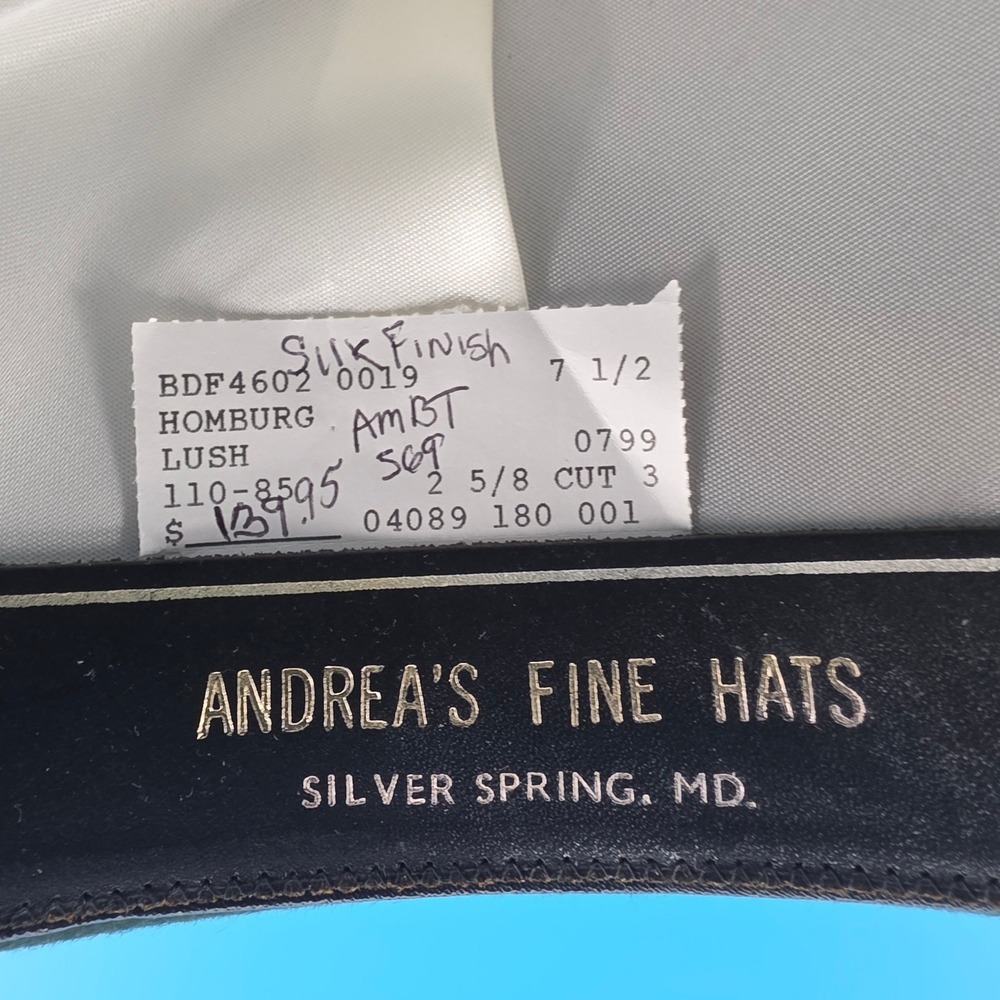 Silk Finish
BDF4602 0019 7 1/2
HOMBURG AMBT
LUSH 569 0799
110-85 2 5/8 CUT 3
$ 139.95 04089 180 001
ANDREA'S FINE HATS
SILVER SPRING. MD.